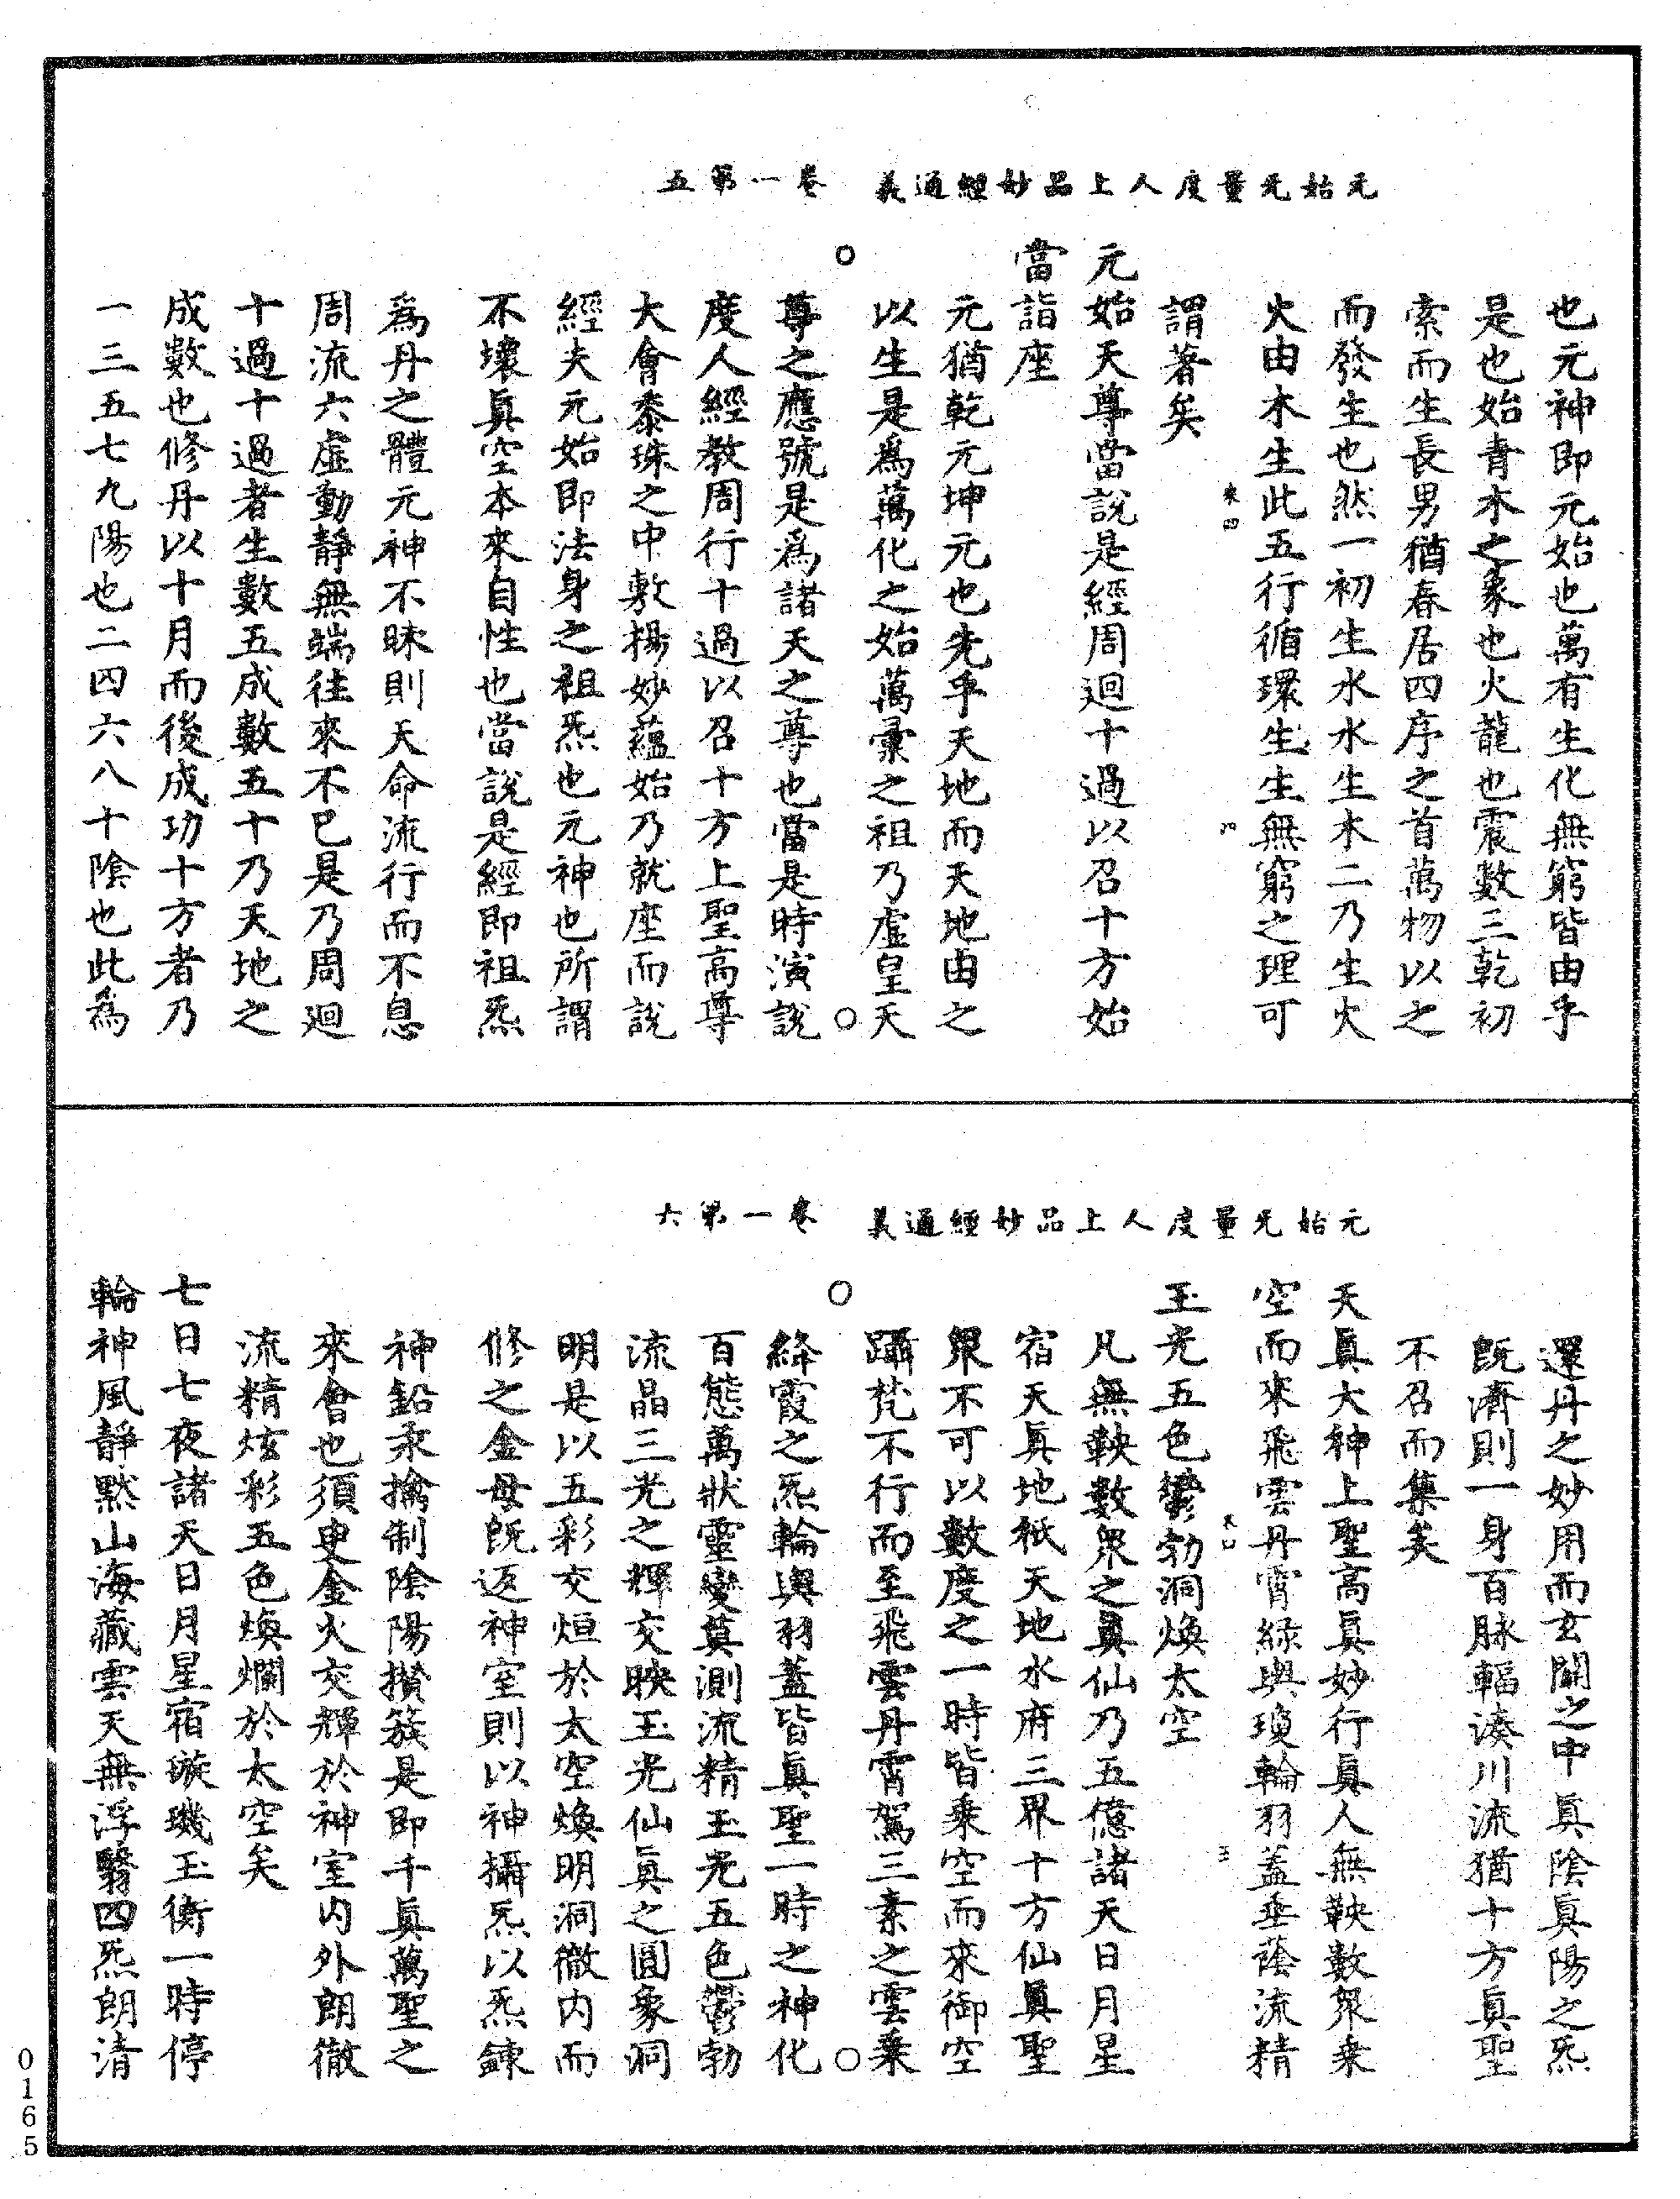 元始无量度人上品妙經通義　卷一第五
也元神即元始也萬有生化無窮皆由乎
是也始青木之象也火龍也震數三乾初
索而生長男猶春居四序之首萬物以之
而發生也然一初生水水生木二乃生火
火由木生此五行循環生生無窮之理可
謂著矣
元始天尊當說是經周迴十過以召十方始
當詣座
元猶乾元坤元也先乎天地而天地由之
以生是爲萬化之始萬彙之祖乃虛皇天
尊之應號是爲諸天之尊也當是時演說
度人經教周行十過以召十方上聖高尊
大會黍珠之中敷揚妙蘊始乃就座而說
經夫元始即法身之祖炁也元神也所謂
不壞眞空本來自性也當說是經即祖炁
爲丹之體元神不昧則天命流行而不息
周流六虛動靜無端往來不已是乃周迴
十過十過者生數五成數五十乃天地之
成數也修丹以十月而後成功十方者乃
一三五七九陽也二四六八十陰也此爲
元始无量度人上品妙經通義　卷一第六
還丹之妙用而玄關之中眞陰眞陽之炁
既濟則一身百脉輻湊川流猶十方眞聖
不召而集矣
天眞大神上聖高眞妙行眞人無鞅數衆乗
空而來飛雲丹霄綠輿瓊輪羽蓋垂蔭流精
玉光五色鬱勃洞煥太空
凡無鞅數衆之眞仙乃五億諸天日月星
宿天眞地祇天地水府三界十方仙眞聖
衆不可以數度之一時皆乗空而來御空
躡梵不行而至飛雲丹霄駕三素之雲乗
絳霞之炁輪輿羽蓋皆眞聖一時之神化
百態萬狀靈變莫測流精玉光五色鬱勃
流晶三光之輝交映玉光仙眞之圓象洞
明是以五彩交烜於太空煥明洞徹内而
修之金母既返神室則以神攝炁以炁鍊
神鉛汞擒制陰陽攅簇是即千眞萬聖之
來會也須臾金火交輝於神室内外朗徹
流精炫彩五色煥爛於太空矣
七日七夜諸天日月星宿璇璣玉衡一時停
輪神風靜默山海藏雲天無浮翳四炁朗清
0165